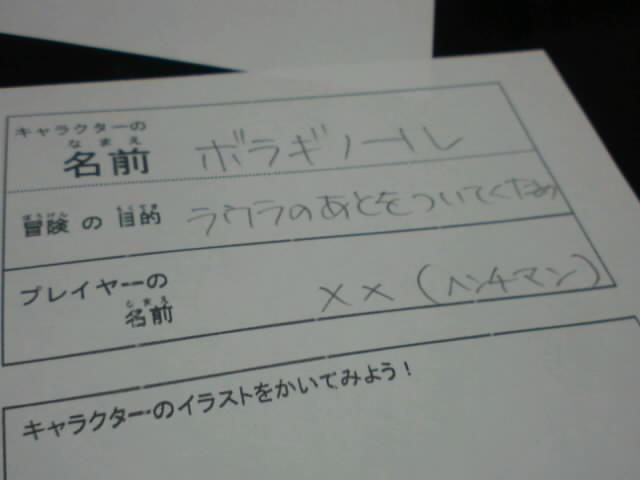 キャラクターの
なまえ
名前 ボラギノール
ぼうけん もくてき
冒険の目的 ラウラのあとをついてくため
プレイヤーの
なまえ
名前 ××(ヘンチマン)
キャラクターのイラストをかいてみよう!